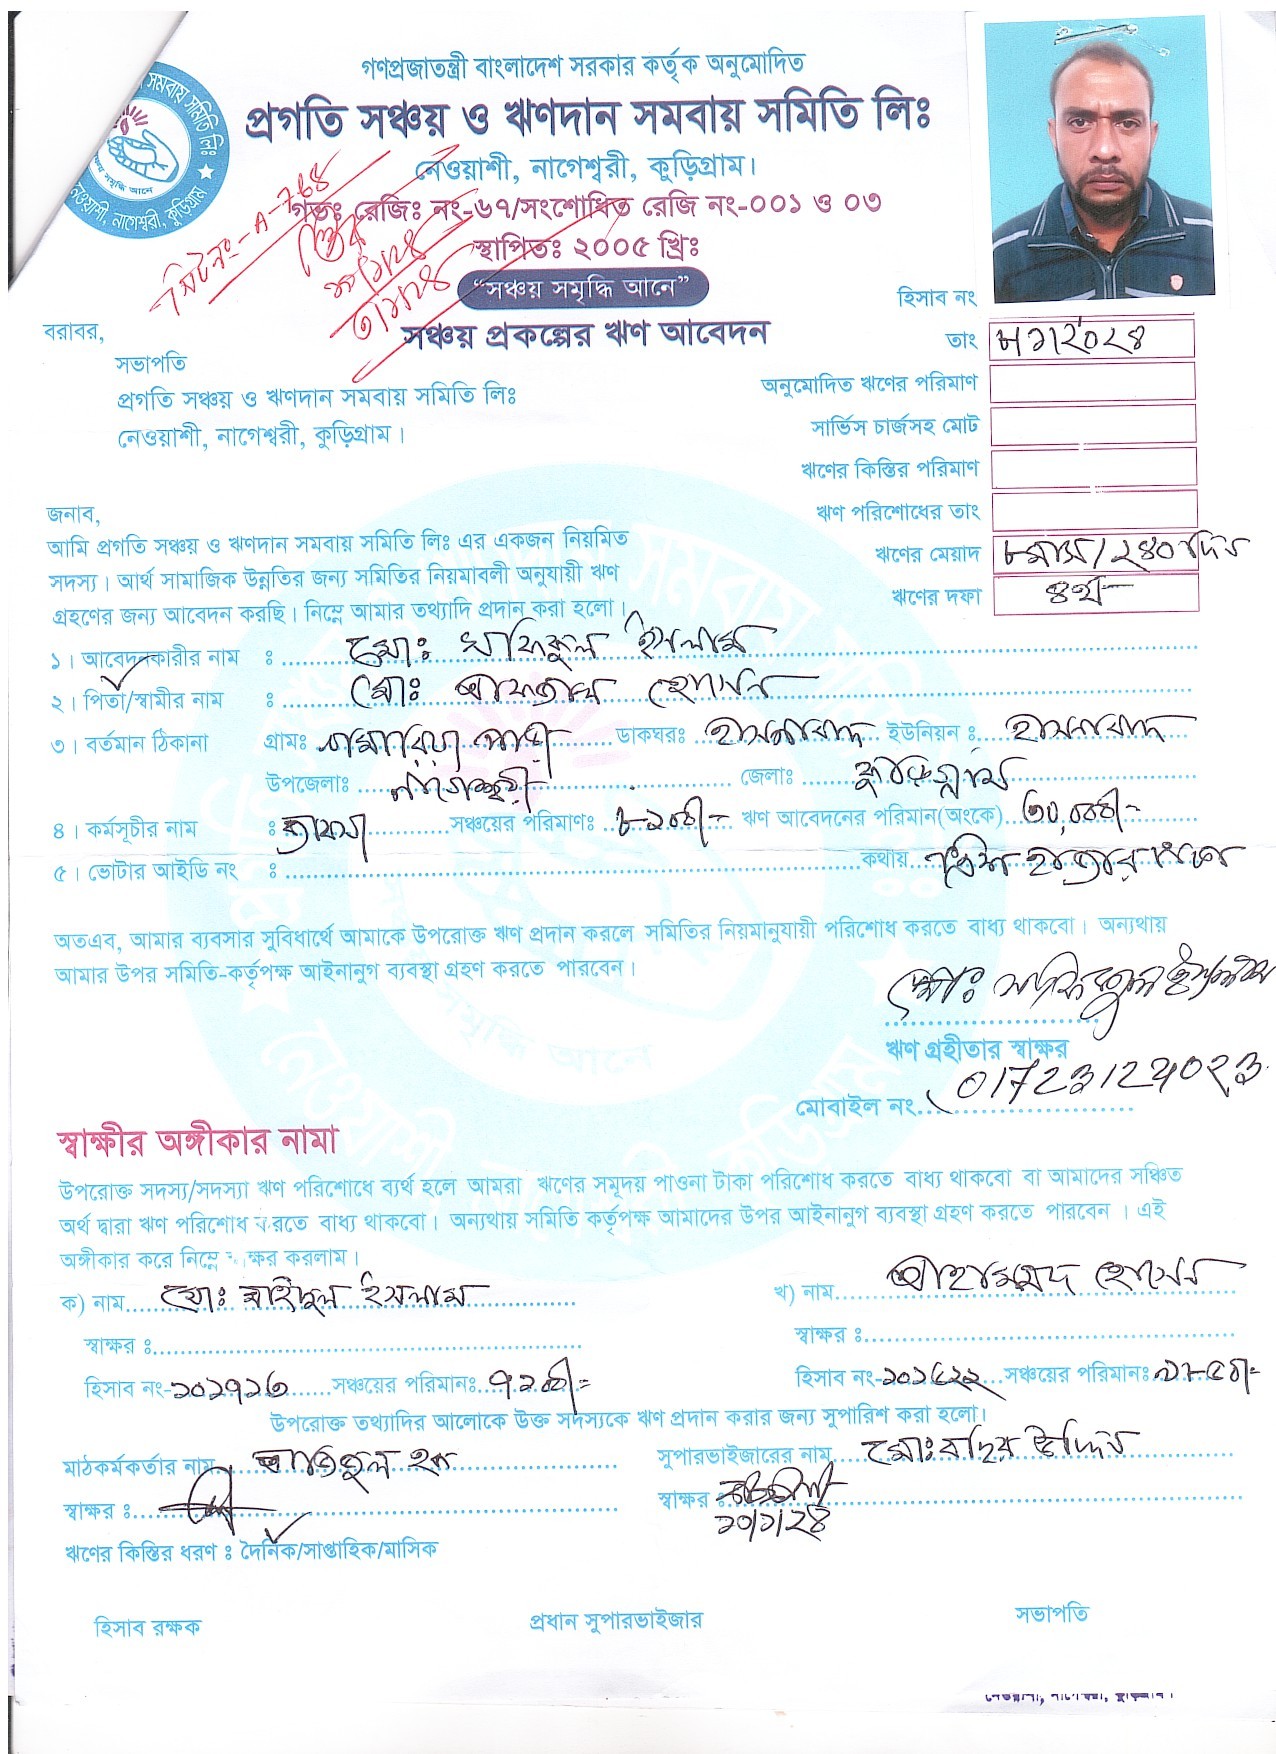 গণপ্রজাতন্ত্রী বাংলাদেশ সরকার কর্তৃক অনুমোদিত
প্রগতি সঞ্চয় ও ঋণদান সমবায় সমিতি লিঃ
নেওয়াশী, নাগেশ্বরী, কুড়িগ্রাম।
গভঃ রেজিঃ নং-৬৭/সংশোধিত রেজি নং-০০১ ও ০৩
স্থাপিতঃ ২০০৫ খ্রিঃ
"সঞ্চয় সমৃদ্ধি আনে"
সঞ্চয় প্রকল্পের ঋণ আবেদন
হিসাব নং
তাং
বরাবর,
সভাপতি
প্রগতি সঞ্চয় ও ঋণদান সমবায় সমিতি লিঃ
নেওয়াশী, নাগেশ্বরী, কুড়িগ্রাম।
অনুমোদিত ঋণের পরিমাণ
সার্ভিস চার্জসহ মোট
ঋণের কিস্তির পরিমাণ
ঋণ পরিশোধের তাং
ঋণের মেয়াদ ৮মাস/২৪০দিন
ঋণের দফা ৪র্থ
জনাব,
আমি প্রগতি সঞ্চয় ও ঋণদান সমবায় সমিতি লিঃ এর একজন নিয়মিত
সদস্য। আর্থ সামাজিক উন্নতির জন্য সমিতির নিয়মাবলী অনুযায়ী ঋণ
গ্রহণের জন্য আবেদন করছি। নিম্নে আমার তথ্যাদি প্রদান করা হলো।
১। আবেদনকারীর নাম ঃ মোঃ শফিকুল ইসলাম
২। পিতা/স্বামীর নাম ঃ মোঃ হোসেন
৩। বর্তমান ঠিকানা গ্রামঃ ডাকঘরঃ হাসনাবাদ ইউনিয়ন ঃ হাসনাবাদ
উপজেলাঃ নাগেশ্বরী জেলাঃ কুড়িগ্রাম
৪। কর্মসূচীর নাম ঃ সঞ্চয়ের পরিমাণঃ ৮১০০/= ঋণ আবেদনের পরিমান(অংকে) ৩০,০০০/=
৫। ভোটার আইডি নং ঃ কথায় ত্রিশ হাজার টাকা
অতএব, আমার ব্যবসার সুবিধার্থে আমাকে উপরোক্ত ঋণ প্রদান করলে সমিতির নিয়মানুযায়ী পরিশোধ করতে বাধ্য থাকবো। অন্যথায়
আমার উপর সমিতি-কর্তৃপক্ষ আইনানুগ ব্যবস্থা গ্রহণ করতে পারবেন।
মোঃ শফিকুল ইসলাম
ঋণ গ্রহীতার স্বাক্ষর
মোবাইল নং
স্বাক্ষীর অঙ্গীকার নামা
উপরোক্ত সদস্য/সদস্যা ঋণ পরিশোধে ব্যর্থ হলে আমরা ঋণের সমূদয় পাওনা টাকা পরিশোধ করতে বাধ্য থাকবো বা আমাদের সঞ্চিত
অর্থ দ্বারা ঋণ পরিশোধ করতে বাধ্য থাকবো। অন্যথায় সমিতি কর্তৃপক্ষ আমাদের উপর আইনানুগ ব্যবস্থা গ্রহণ করতে পারবেন । এই
অঙ্গীকার করে নিম্নে স্বাক্ষর করলাম।
ক) নাম মোঃ সাইদুল ইসলাম খ) নাম মোহাম্মদ হোসেন
স্বাক্ষর ঃ স্বাক্ষর ঃ
হিসাব নং-১০১৭১৬ সঞ্চয়ের পরিমানঃ ৭২০০/= হিসাব নং-১০১৫২২ সঞ্চয়ের পরিমানঃ
উপরোক্ত তথ্যাদির আলোকে উক্ত সদস্যকে ঋণ প্রদান করার জন্য সুপারিশ করা হলো।
মাঠকর্মকর্তার নাম হক সুপারভাইজারের নাম মোঃ উদ্দিন
স্বাক্ষর ঃ স্বাক্ষর ঃ
১০/১/২৪
ঋণের কিস্তির ধরণ ঃ দৈনিক/সাপ্তাহিক/মাসিক
হিসাব রক্ষক প্রধান সুপারভাইজার সভাপতি